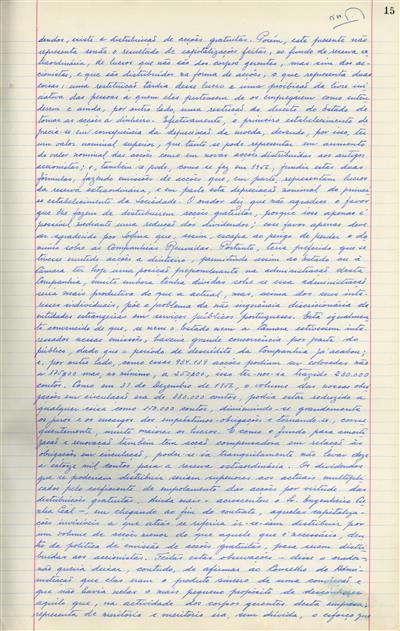 15
dendos, existe a distribuição de acções gratuitas. Porém, este presente não
representa senão o resultado de capitalizações feitas, no fundo de reserva ex-
traordinária, de lucros que não são dos corpos gerentes, mas sim dos ac-
cionistas, e que são distribuidos na forma de acções, o que representa duas
coisas: uma restituição tardia desse lucro e uma proibição da livre ini-
ciativa das pessoas a quem eles pertencem de os empregarem como enten-
derem e, ainda, por outro lado, uma restrição do direito do Estado de
tomar as acções a dinheiro. Efectivamente, o primeiro estabelecimento de-
precia-se em consequência da depreciação da moeda, devendo, por isso, ter
um valor nominal superior, que tanto se pode representar em aumento
do valor nominal das acções como em novas acções distribuidas aos antigos
accionistas; e, também se pode, como se fez em 1952, fundir estas duas
fórmulas, fazendo emissões de acções que, em parte, representem lucros
da reserva extraordinária, e em parte esta depreciação nominal do primei-
ro estabelecimento da Sociedade. O orador diz que não agradece o favor
que lhe fazem de distribuirem acções gratuitas, porque isso apenas é
possível mediante uma redução dos dividendos; esse favor apenas deve
ser agradecido por que, assim, escapa ao perigo de perder o do-
mínio sobre as Companhias Reunidas. Portanto, teria preferido que se
tivesse emitido acções a dinheiro, permitindo assim ao Estado ou à
Câmara ter hoje uma posição preponderante na administração desta
Companhia, muito embora tenha dúvidas sobre se essa administração
seria mais produtiva do que a actual, mas, acima dos seus inte-
resses individuais, põe o problema da não ingerência discricionária de
entidades estrangeiras em serviços públicos portugueses. Está igualmen-
te convencido de que, se nem o Estado nem a Câmara estivessem inte-
ressados nessa emissão, haveria grande concorrência por parte do
público, dado que o período de descrédito da Companhia já acabou;
e, por outro lado, como essas acções podiam ser cobradas não
a mas, no mínimo, a isso ter-nos-ia trazido 230.000
contos. Como em 31 de Dezembro de 1956, o volume das nossas obri-
gações em circulação era de 380.000 contos, podia estar reduzido a
qualquer coisa como 150.000 contos, diminuindo-se grandemente
os juros e os encargos dos empréstimos-obrigações e tornando-se, conse-
quentemente, muito maiores os lucros. E como o fundo para ampli-
ação e renovação também tem acção compensadora em relação às
obrigações em circulação, poder-se-ia tranquilamente não levar doze
a catorze mil contos para a reserva extraordinária. Os dividendos
que se poderiam distribuir seriam superiores aos actuais multipli-
cados pelo coeficiente de empolamento das acções por virtude da
distribuição gratuitas. Ainda mais — acrescentou o Sr. Engenheiro Cu-
nha Leal —, em chegando ao fim do contrato, aquelas capitaliza-
ções invisíveis a que atrás se referira ir-se-iam distribuir por
um volume de acções menor do que aquele que é necessário, den-
tro da política de emissão de acções gratuitas, para serem distri-
buidas aos accionistas. Feitas estas observações — disse o orador —
não queria deixar, contudo, de afirmar ao Conselho de Admi-
nistração que elas eram o produto sincero de uma convicção e
que não havia nelas o mais pequeno propósito de desconhecer
aquilo que, na actividade dos corpos gerentes desta empresa,
representa de meritório e meritório era, sem dúvida, o esforço que